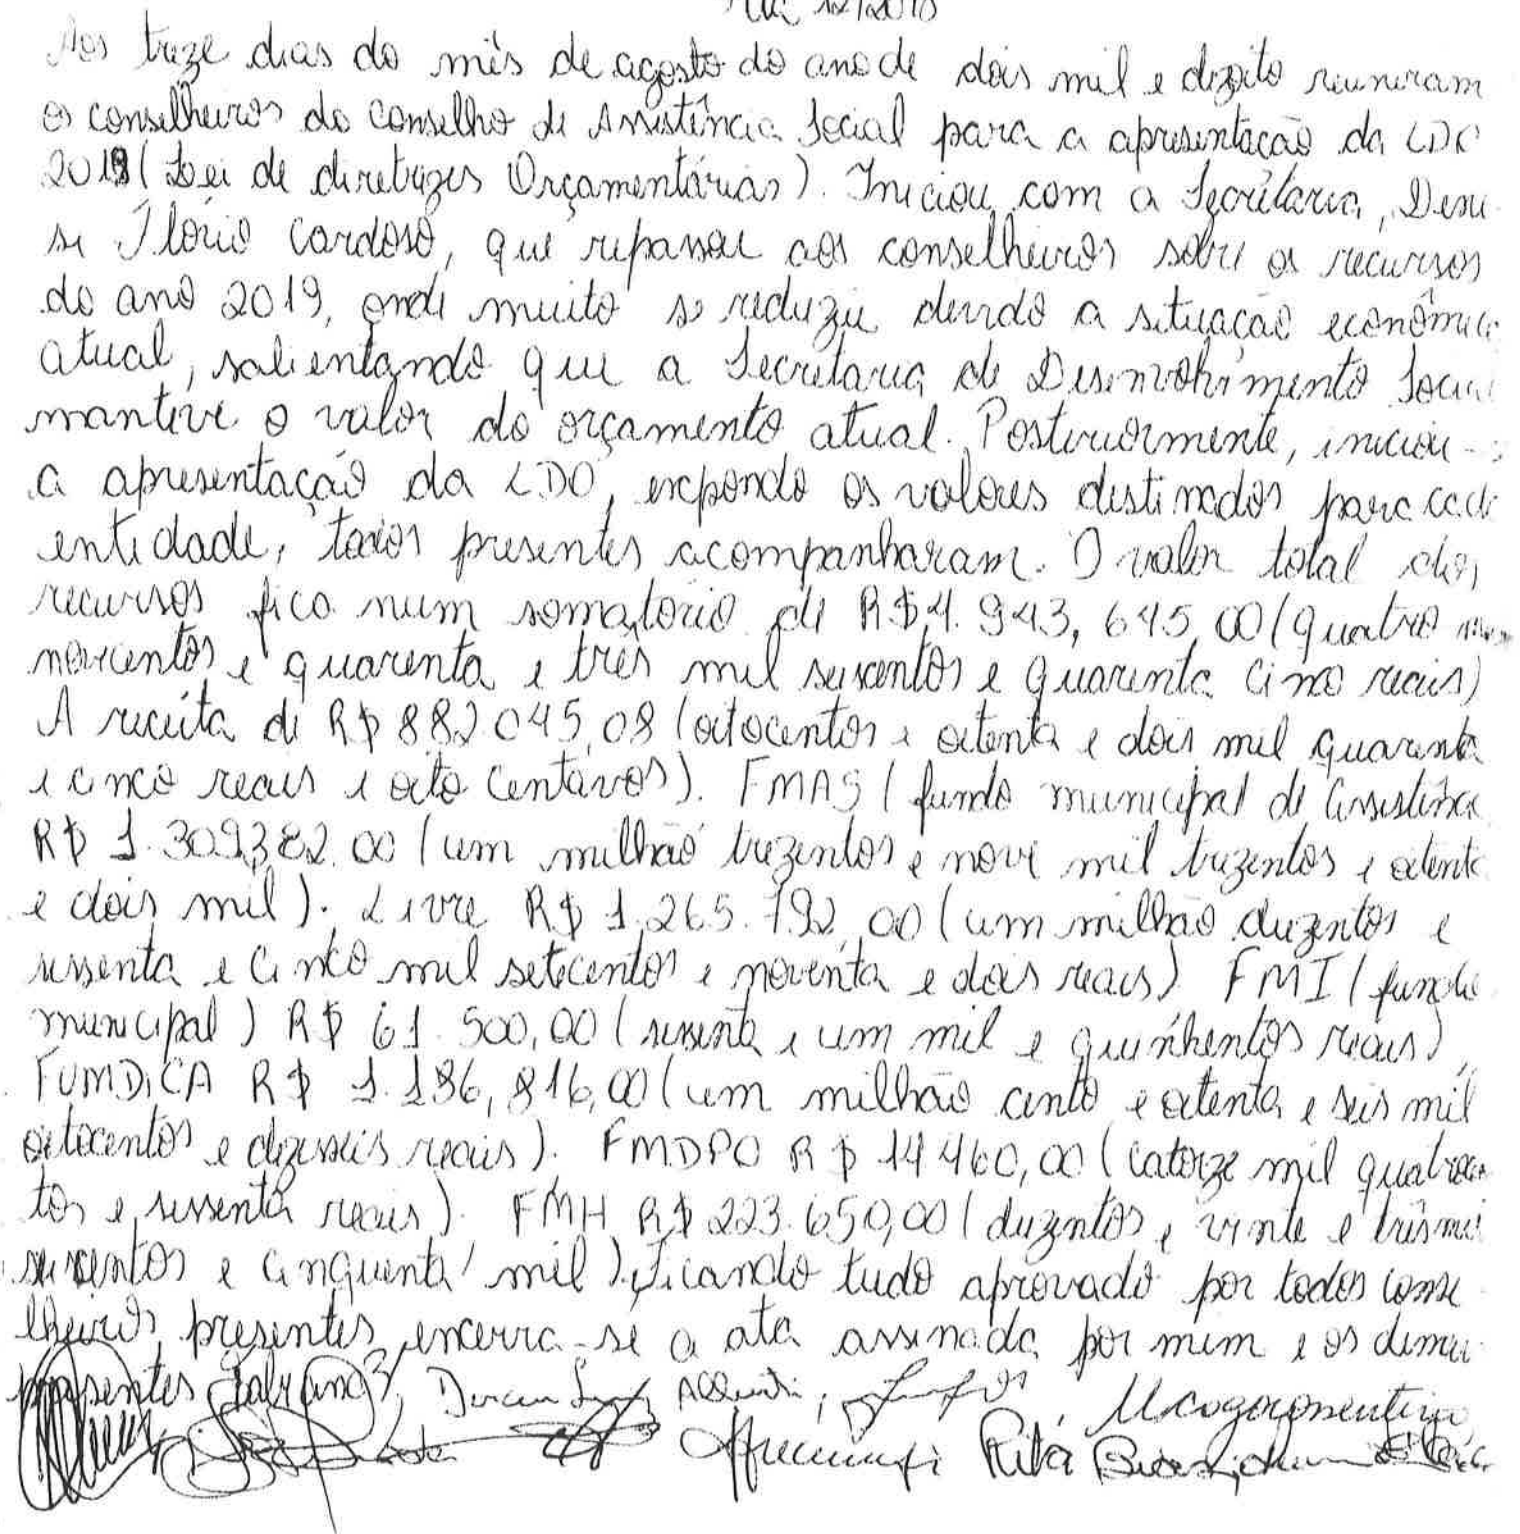 12/2018
Aos treze dias do mês de agosto do ano de dois mil e dezoito reuniram
os conselheiros do conselho de Assistência Social para a apresentação da LDO
2019 (Lei de diretrizes Orçamentárias). Iniciou com a Secretaria, Deni
se Ilório Cardoso, que repassou aos conselheiros sobre os recursos
do ano 2019, onde muito se reduziu devido a situação econômica
atual, salientando que a Secretaria de Desenvolvimento Social
manteve o valor do orçamento atual. Posteriormente, iniciou-se
a apresentação da LDO, expondo os valores destinados para cada
entidade, todos presentes acompanharam. O valor total dos
recursos fico num somatorio de R$ 4.943,645,00 (quatro
novecentos e quarenta e três mil seiscentos e quarenta cinco reais)
A receita de R$ 882.045,08 (oitocentos e oitenta e dois mil quarenta
e cinco reais e oito centavos). FMAS (fundo municipal de Assistência
R$ 1.309,382.00 (um milhão trezentos e nove mil trezentos e oitenta
e dois mil). Livre R$ 1.265.792,00 (um milhão duzentos e
sessenta e cinco mil setecentos e noventa e dois reais). FMI (fundo
municipal) R$ 61.500,00 (sessenta e um mil e quinhentos reais),
FUMDICA R$ 1.186,816,00 (um milhão cento e oitenta e seis mil
oitocentos e dezesseis reais). FMDPO R$ 14460,00 (catorze mil quatrocen
tos e sessenta reais). FMH R$ 223.650,00 (duzentos e vinte e três mil
seiscentos e cinquenta mil). Ficando tudo aprovado por todos conse
lheiros presentes, encerra-se a ata assinada por mim e os demais
presentes
Rita